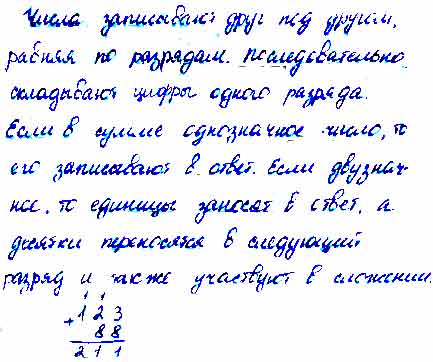 Числа записывают друг под другом,
равняя по разрядам. Последовательно
складывают цифры одного разряда.
Если в сумме однозначное число, то
его записывают в ответ. Если двузнач-
ное, то единицы заносят в ответ, а
десятки переносятся в следующий
разряд и также участвуют в сложении.
1 1
+ 1 2 3
8 8
2 1 1